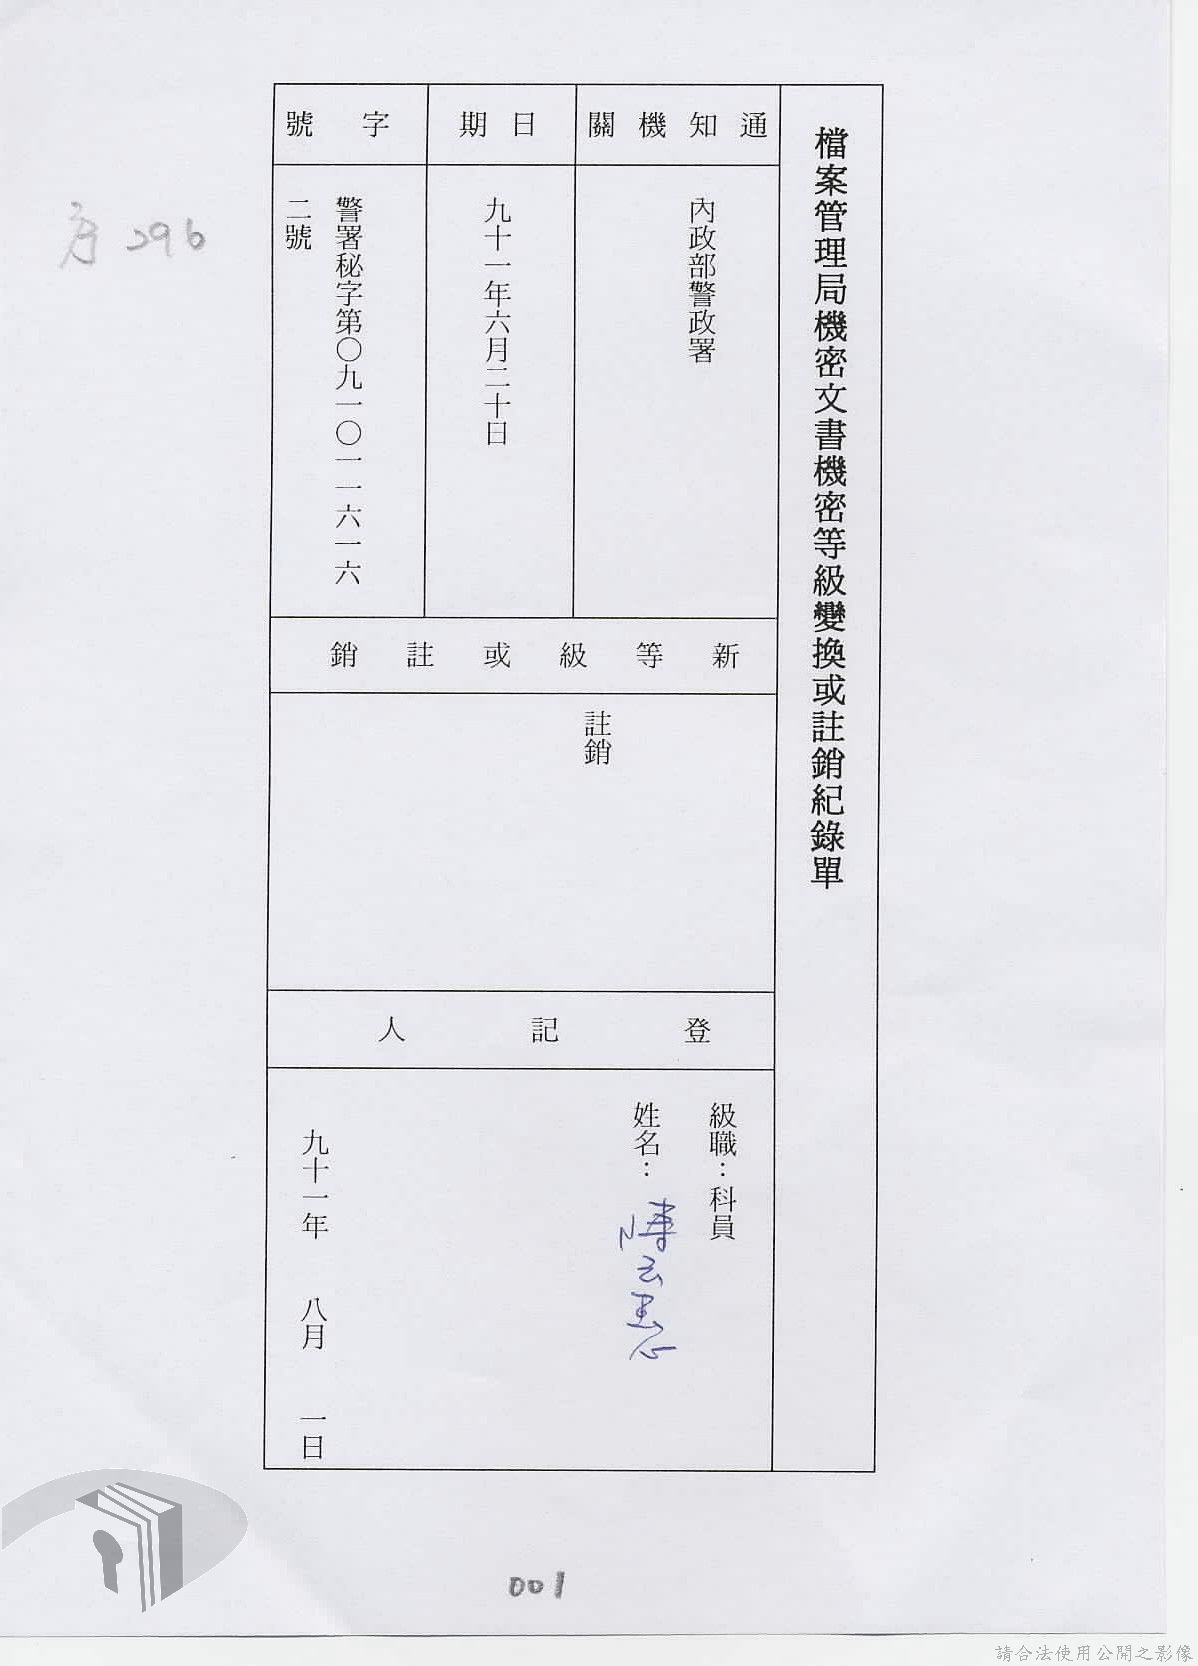 檔案管理局機密文書機密等級變換或註銷紀錄單
通知機關
內政部警政署
日期
九十一年六月二十日
字號
警署秘字第〇九一〇一一六一六
二號
新等級或註銷
註銷
登記人
級職：科員
姓名：陳云惠
九十一年 八月 一日
序 296
001
請合法使用公開之影像